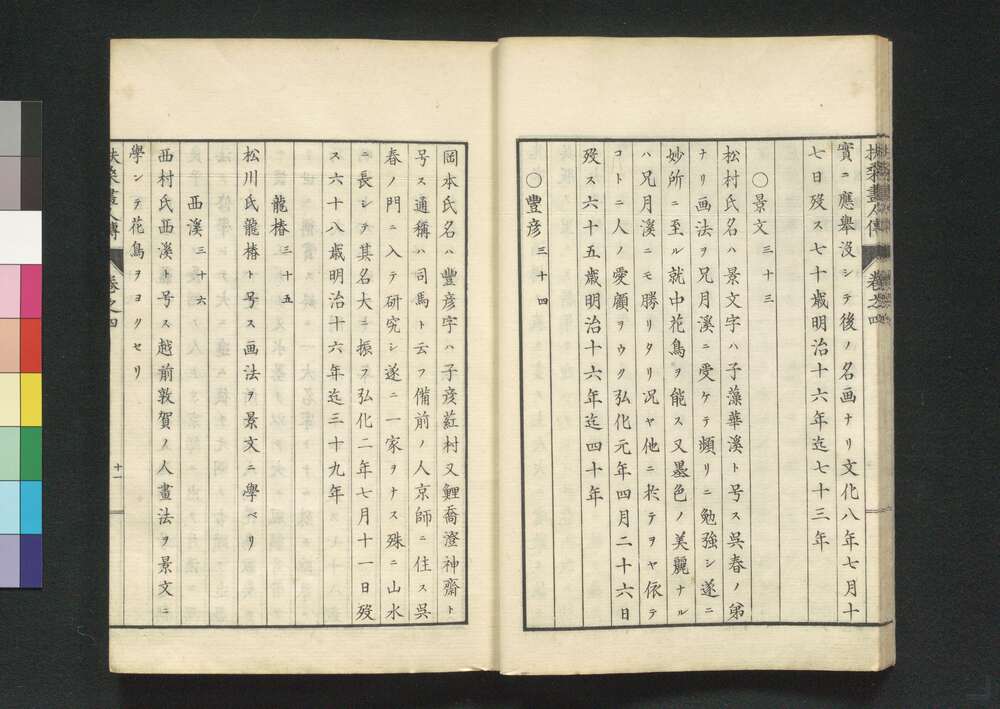 實ニ應舉沒シテ後ノ名画ナリ文化八年七月十
七日歿ス七十歳明治十六年迄七十三年
〇景文 三十三
松村氏名ハ景文字ハ子藻華溪ト号ス呉春ノ弟
ナリ画法ヲ兄月溪ニ受ケテ頻リニ勉強シ遂ニ
妙所ニ至ル就中花鳥ヲ能ス又墨色ノ美麗ナル
ハ兄月溪ニモ勝リタリ况ヤ他ニ於テヲヤ依テ
コトニ人ノ愛顧ヲウク弘化元年四月二十六日
歿ス六十五歳明治十六年迄四十年
〇豐彦 三十四
岡本氏名ハ豐彦字ハ子彦葒村又鯉喬澄神齋ト
号ス通稱ハ司馬ト云フ備前ノ人京師ニ住ス呉
春ノ門ニ入テ研究シ遂ニ一家ヲナス殊ニ山水
ニ長シテ其名大ニ振ヲ弘化二年七月十一日歿
ス六十八歳明治十六年迄三十九年
龍椿 三十五
松川氏龍椿ト号ス画法ヲ景文ニ學ベリ
西溪 三十六
西村氏西溪ト号ス越前敦賀ノ人畫法ヲ景文ニ
學ンテ花鳥ヲヨクセリ
扶桑畫人傳 卷之四
十一